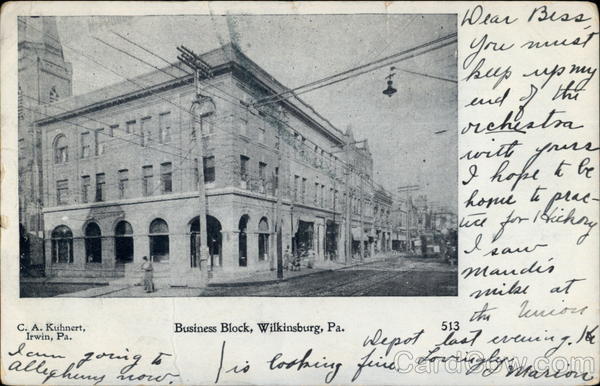 Dear Bess,
You must
keep up my
end of the
orchestra
with yours
I hope to be
home to prac-
tice for Hickory
I saw
Maudis
mike at
the Union
C. A. Kuhnert,
Irwin, Pa.
Business Block, Wilkinsburg, Pa.
513
Depot last evening. He
is looking fine Lovingly
Marion
I am going to
Allegheny now.
CardCow.com